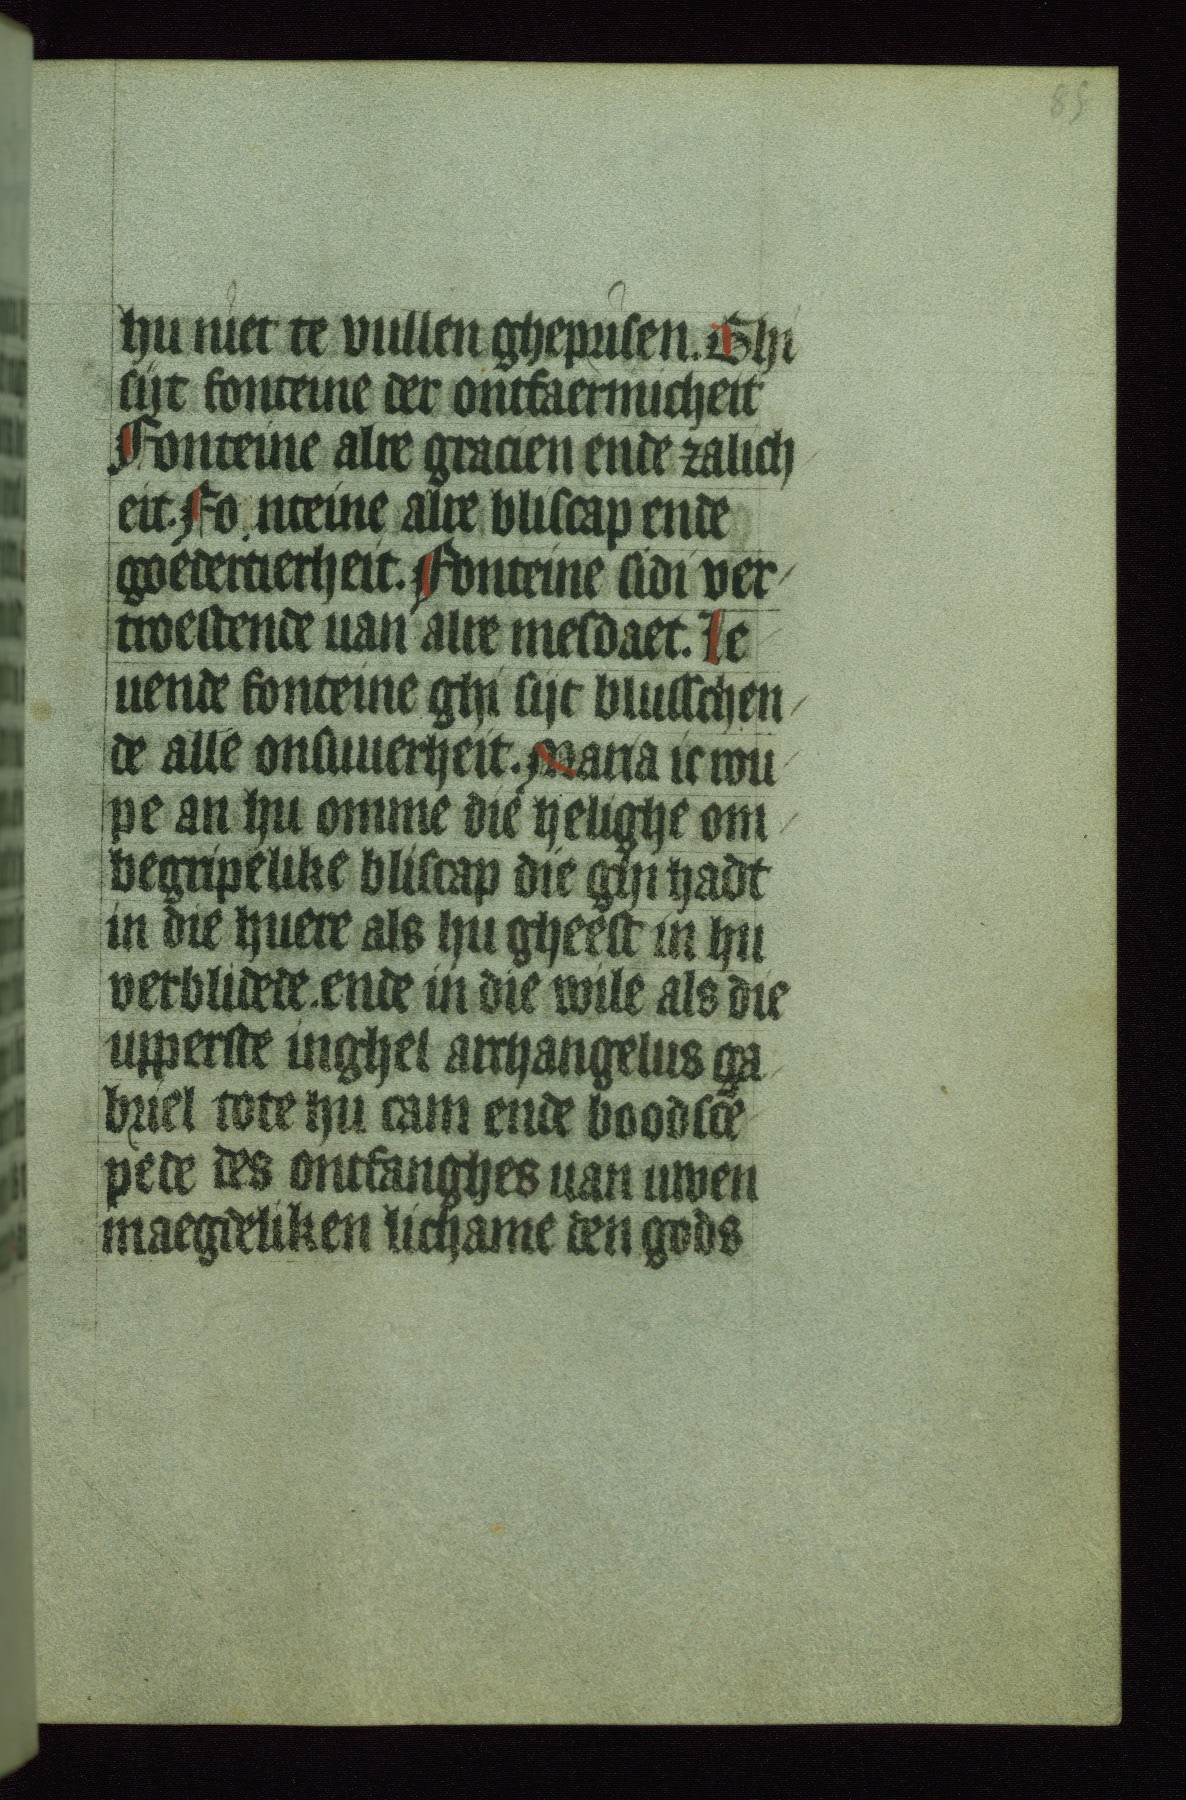 85
hu niet te vullen ghepriisen. Ghi
siit fonteine der ontfaermicheit
Fonteine alre gracien ende zalich
eit. Fo nteine alre bliscap ende
goedertierheit. Fonteine sidi ver
troestende uan alre mesdaet. Ie
uende fonteine ghi siit blusschen
de alle onsuuerheit. Maria ic wu
pe an hu omme die helighe om
begripelike bliscap die ghi hadt
in die huere als hu gheest in hu
verblidede. ende in die wile als die
upperste inghel archangelus ga
briel tote hu cam ende boodsce
pede des ontfanghes uan uwen
maegdeliken lichame den gods